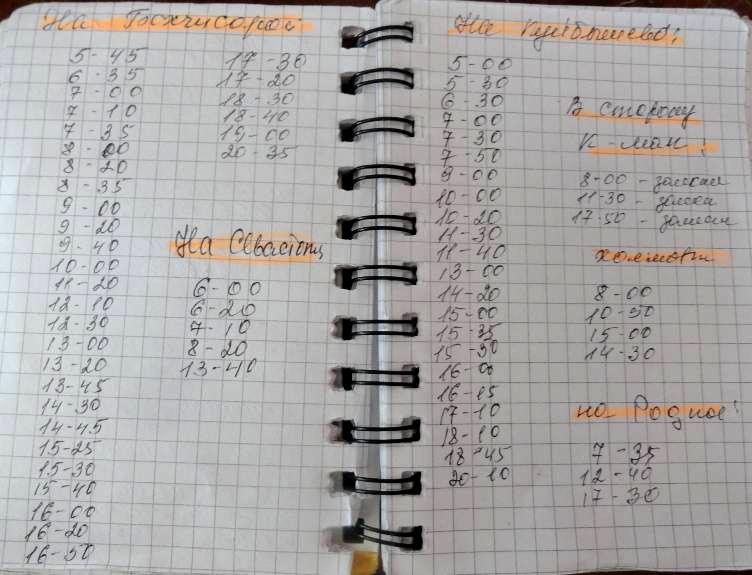 На Бахчисарай
5-45
6-35
7-00
7-10
7-35
8-00
8-20
8-35
9-00
9-20
9-40
10-00
11-20
12-10
12-30
13-00
13-20
13-45
14-30
14-45
15-25
15-30
15-40
16-00
16-20
16-50
17-30
17-20
18-30
18-40
19-00
20-35
На Севастоп
6-00
6-20
7-10
8-20
13-40
На Куйбышево:
5-00
5-30
6-30
7-00
7-30
7-50
9-00
10-00
10-20
11-30
11-40
13-00
14-20
15-00
15-35
15-50
16-00
16-25
17-10
18-10
18-45
20-10
В сторону
К-ман:
8-00 -
11-30 -
17-50 -
8-00
10-50
15-00
14-30
на Родное:
7-35
12-40
17-30